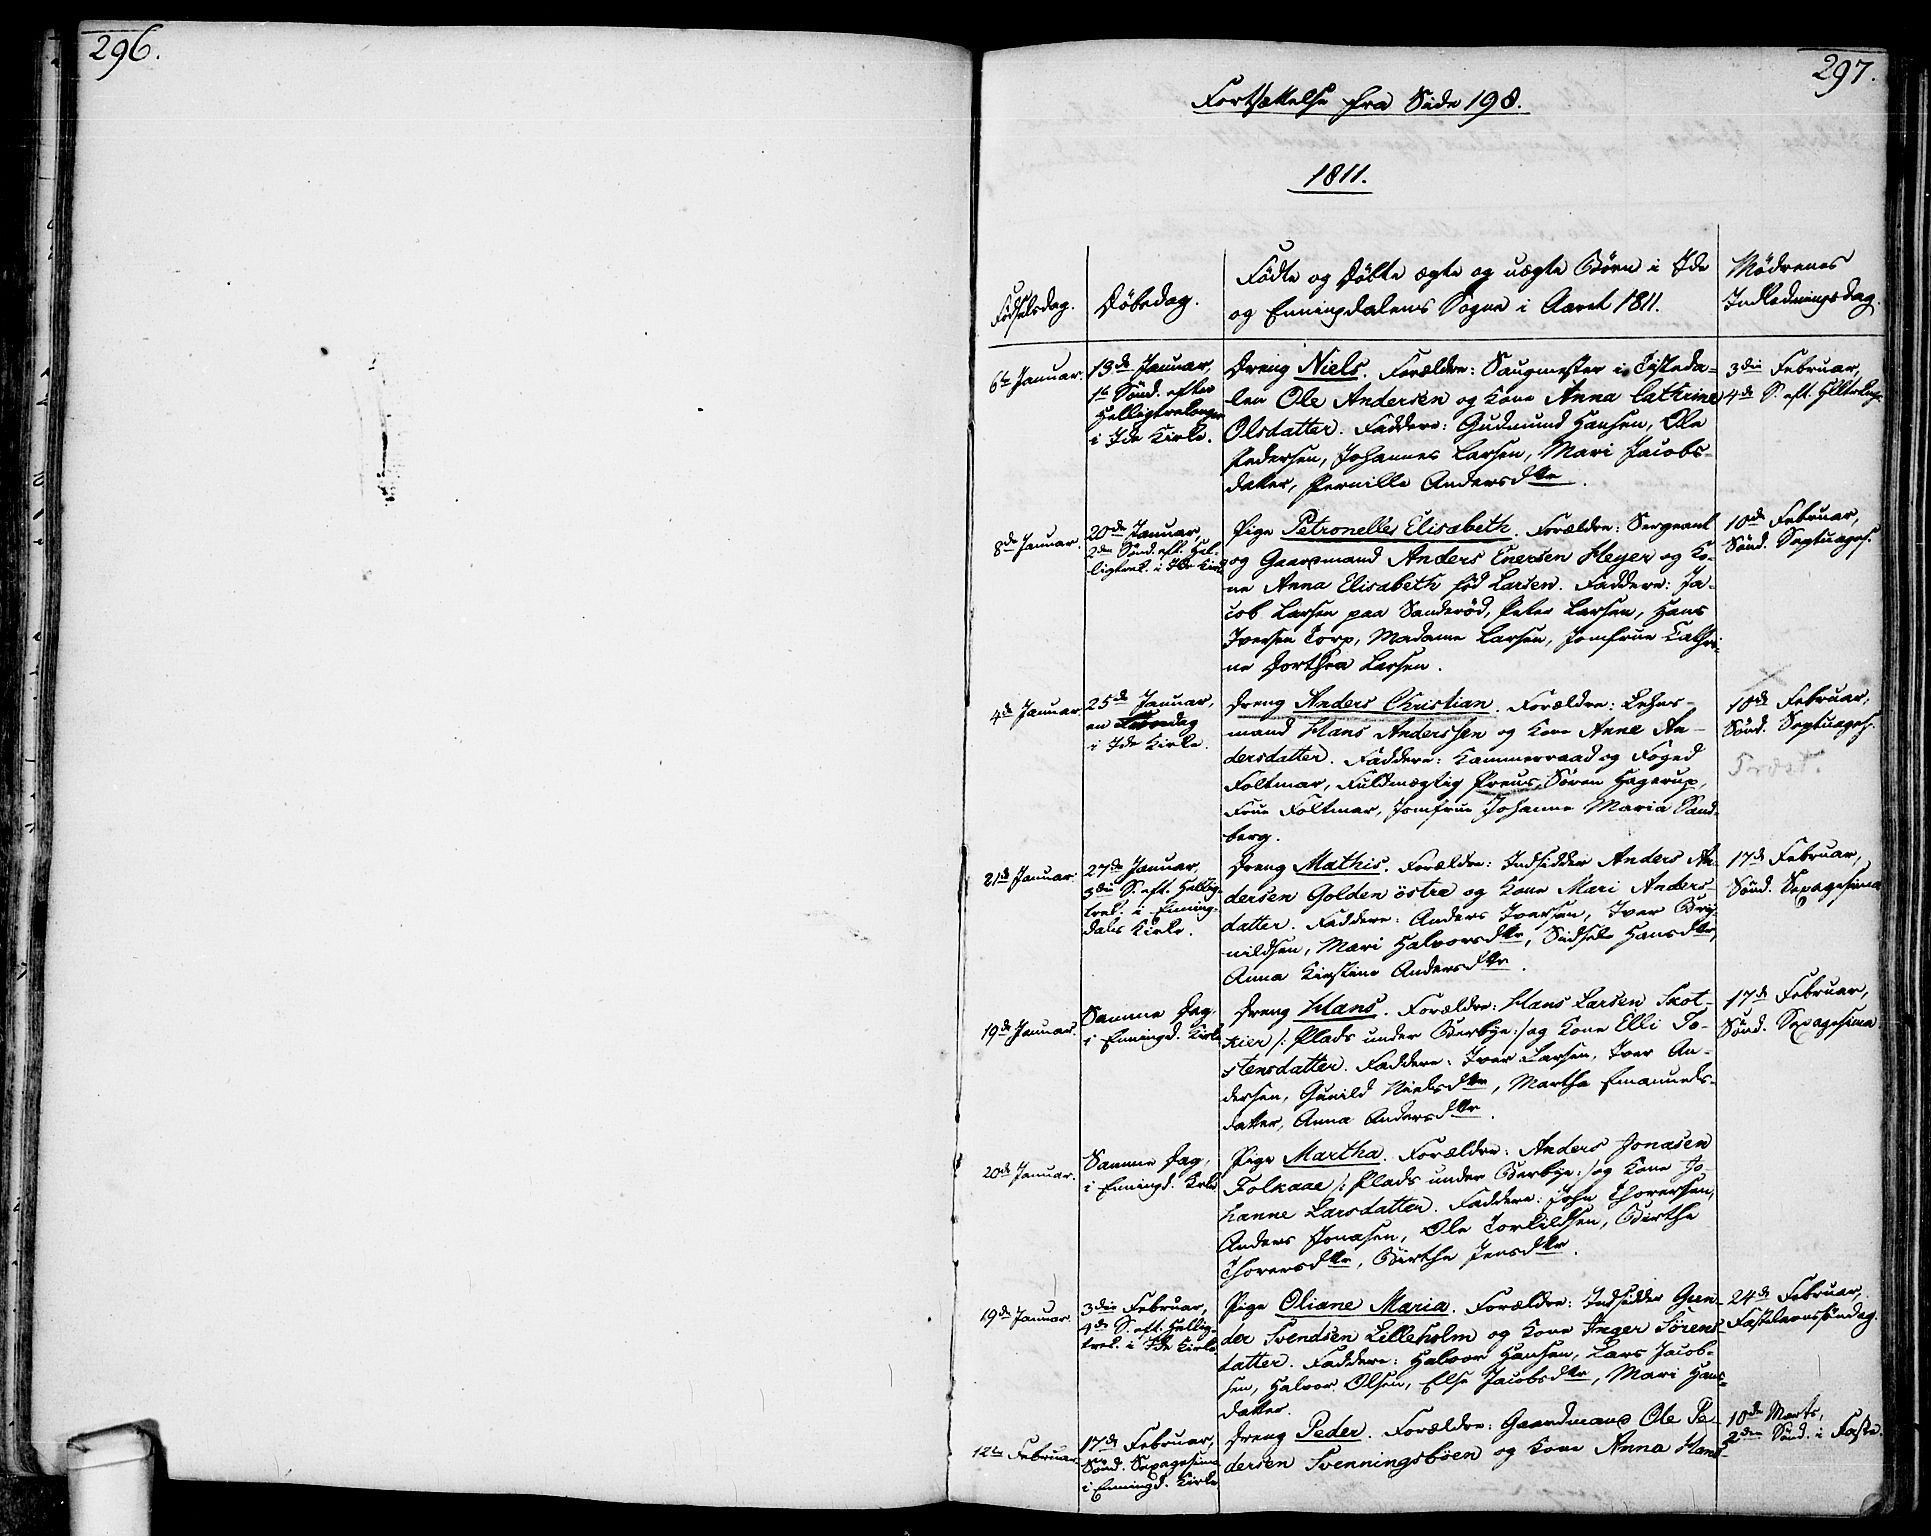 296.
297.
Fortsættelse fra Side 198.
1811.
Fødselsdag.
Døbedag.
Fødte og Døbte ægte og uægte Børn i Ide
og Enningdalens Sogne i Aaret 1811.
Mødrenes
Indledningsdag.
6te Januar.
13de Januar,
1te Sönd. efter
Helligtrekonger
i Ide Kirke.
Dreng Niels. Forældre: Saugmester i Tisteda-
len Ole Andersen og Kone Anna Cathrine
Olsdatter. Faddere: Gudmund Hansen, Ole
Pedersen, Johannes Larsen, Mari Jacobs-
datter, Pernille Andersdttr.
3die Februar,
4de S. eft. Hlltrkng.
8de Januar.
20de Januar,
2den Sönd. eft. Hel-
ligtrek. i Ide Kirke
Pige Petronelle Elisabeth. Forældre: Sergeant
og Gaardmand Anders Enersen Heyer og Ko-
ne Anna Elisabeth fød Larsen. Faddere: Ja-
cob Larsen paa Sanderød, Peter Larsen, Hans
Iversen Torp, Madame Larsen, Jomfrue Cathri-
ne Dorthea Larsen.
10de Februar,
Sönd. Septuages.
4de Januar.
25de Januar,
en Löverdag
i Ide Kirke.
Dreng Anders Christian. Forældre: Lehns-
mand Hans Anderssen og Kone Anne An-
dersdatter. Faddere: Kammerraad og Foged
Foltmar, Fuldmægtig Preus, Sören Hagerup,
Frue Foltmar, Jomfrue Johanne Maria Sand-
berg.
10de Februar,
Sönd. Septuages.
21de Januar.
27de Januar,
3die S. eft. Hellig-
trek. i Enning-
dals Kirke.
Dreng Mathis. Forældre: Indsidder Anders An-
dersen Golden östre og Kone Mari Anders-
datter. Faddere: Anders Iversen, Iver Bry-
nildsen, Mari Halvorsdttr, Sidsel Hansdttr,
Anna Kirstine Andersdttr.
17de Februar,
Sönd. Sexagesima
19de Januar.
Samme Dag,
i Enningd. Kirke
Dreng Hans. Forældre: Hans Larsen Skot-
kier /: Plads under Berbye :/ og Kone Elli To-
stensdatter. Faddere: Iver Larsen, Iver An-
dersen, Gunild Nielsdttr, Martha Emanuels-
datter, Anna Andersdttr.
17de Februar,
Sönd. Sexagesima
20de Januar.
Samme Dag,
i Enningd. Kirke
Pige Martha. Forældre: Anders Jonasen
Folkaae /: Plads under Berbye :/ og Kone Jo-
hanne Larsdatter. Faddere: John Thorersen,
Anders Jonasen, Ole Torkildsen, Birthe
Thorersdttr, Birthe Jensdttr.
19de Januar.
3die Februar,
4de S. eft. Hellig-
trek. i Ide Kirke
Pige Oliane Maria. Forældre: Indsidder Gun-
der Svendsen Lilleholm og Kone Inger Sörens-
datter. Faddere: Halvor Hansen, Lars Jacob-
sen, Halvor Olsen, Else Jacobsdttr, Mari Hans-
datter.
24de Februar,
Fastelavnssöndag.
12te Februar.
17de Februar,
Sönd. Sexagesima
i Enningd. Kirke
Dreng Peder. Forældre: Gaardmand Ole Pe-
dersen Svenningsböen og Kone Anna Hans-
10de Marts,
2den Sönd. i Faste.